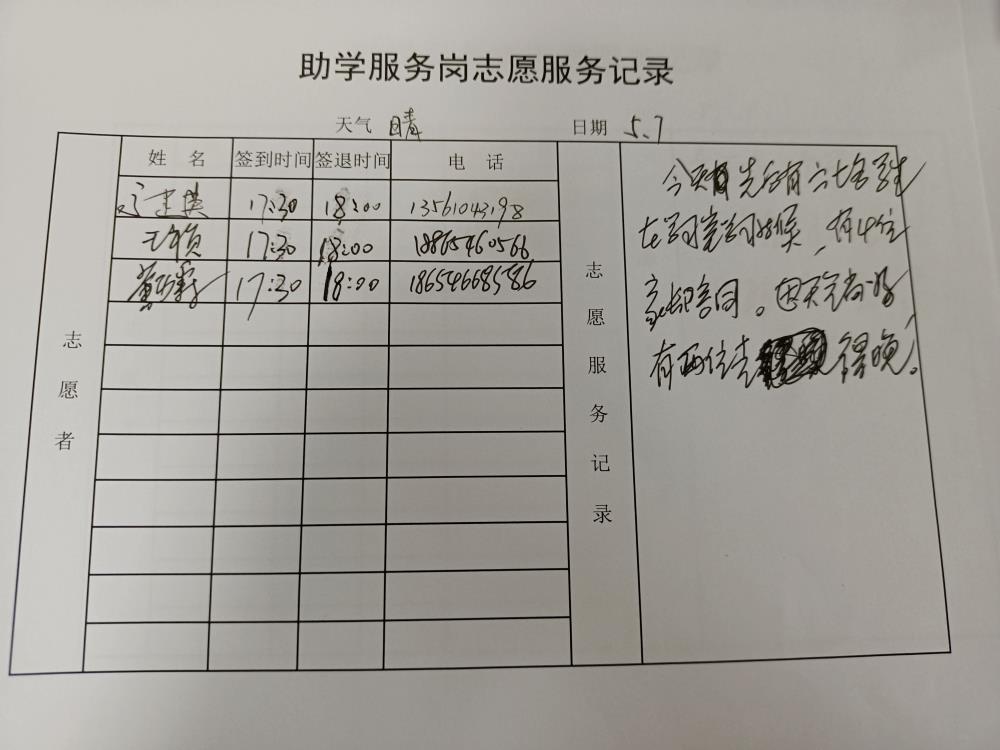 助学服务岗志愿服务记录
天气 晴 日期 5.7
志愿者
姓 名 签到时间 签退时间 电 话
建英 17:30 18:00 13561043198
王 17:30 18:00 18865460566
17:30 18:00 18654668586
志愿服务记录
今天有先后有六七名学生
在学习, 有4位
家长陪同。因天气
有两位走 得晚。